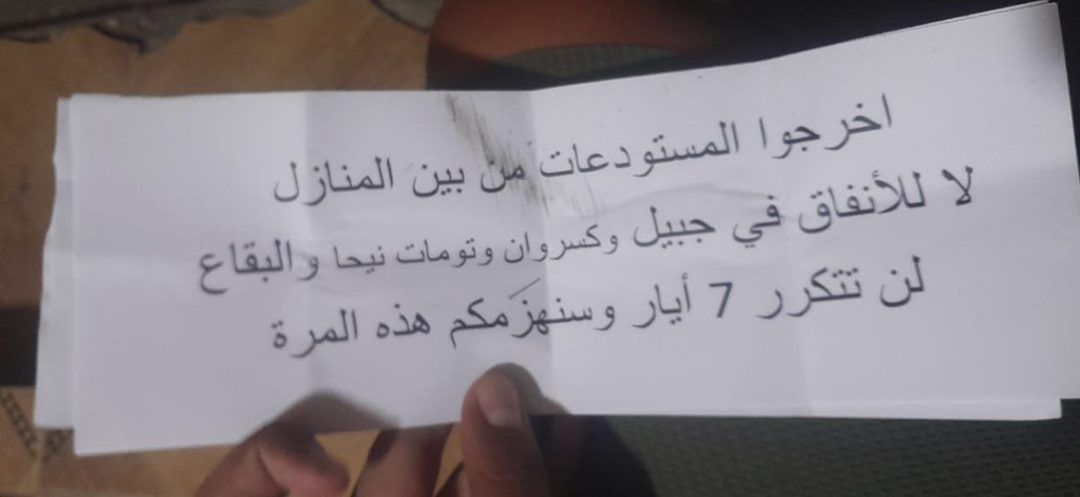 اخرجوا المستودعات من بين المنازل
لا للأنفاق في جبيل وكسروان وتومات نيحا والبقاع
لن تتكرر 7 أيار وسنهزَمكم هذه المرة